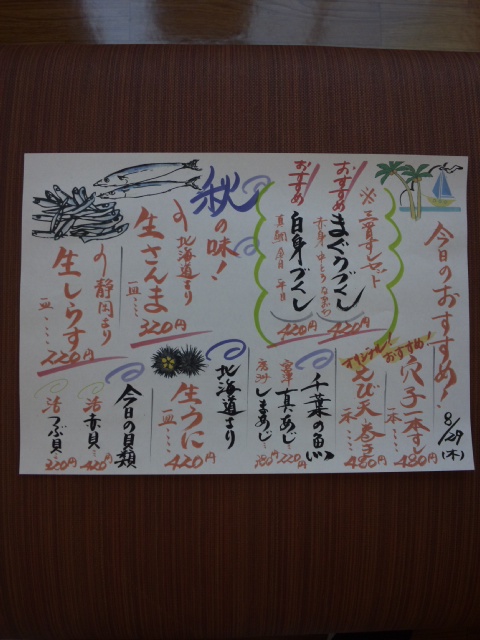 今日のおすすめ！
8/29
(木)
おすすめ
※三貫すしセット
まぐろづくし
420円
おすすめ
白身づくし
真鯛
420円
秋の味！
北海道より
生さんま
一皿…
220円
静岡より
生しらす
一皿…
220円
おすすめ！
穴子一本すし
一本…
480円
えび天巻き
一本…
480円
千葉の魚
真あじ
220円
しまあじ
380円
北海道より
生うに
一皿…
420円
今日の貝類
活赤貝
420円
活つぶ貝
320円